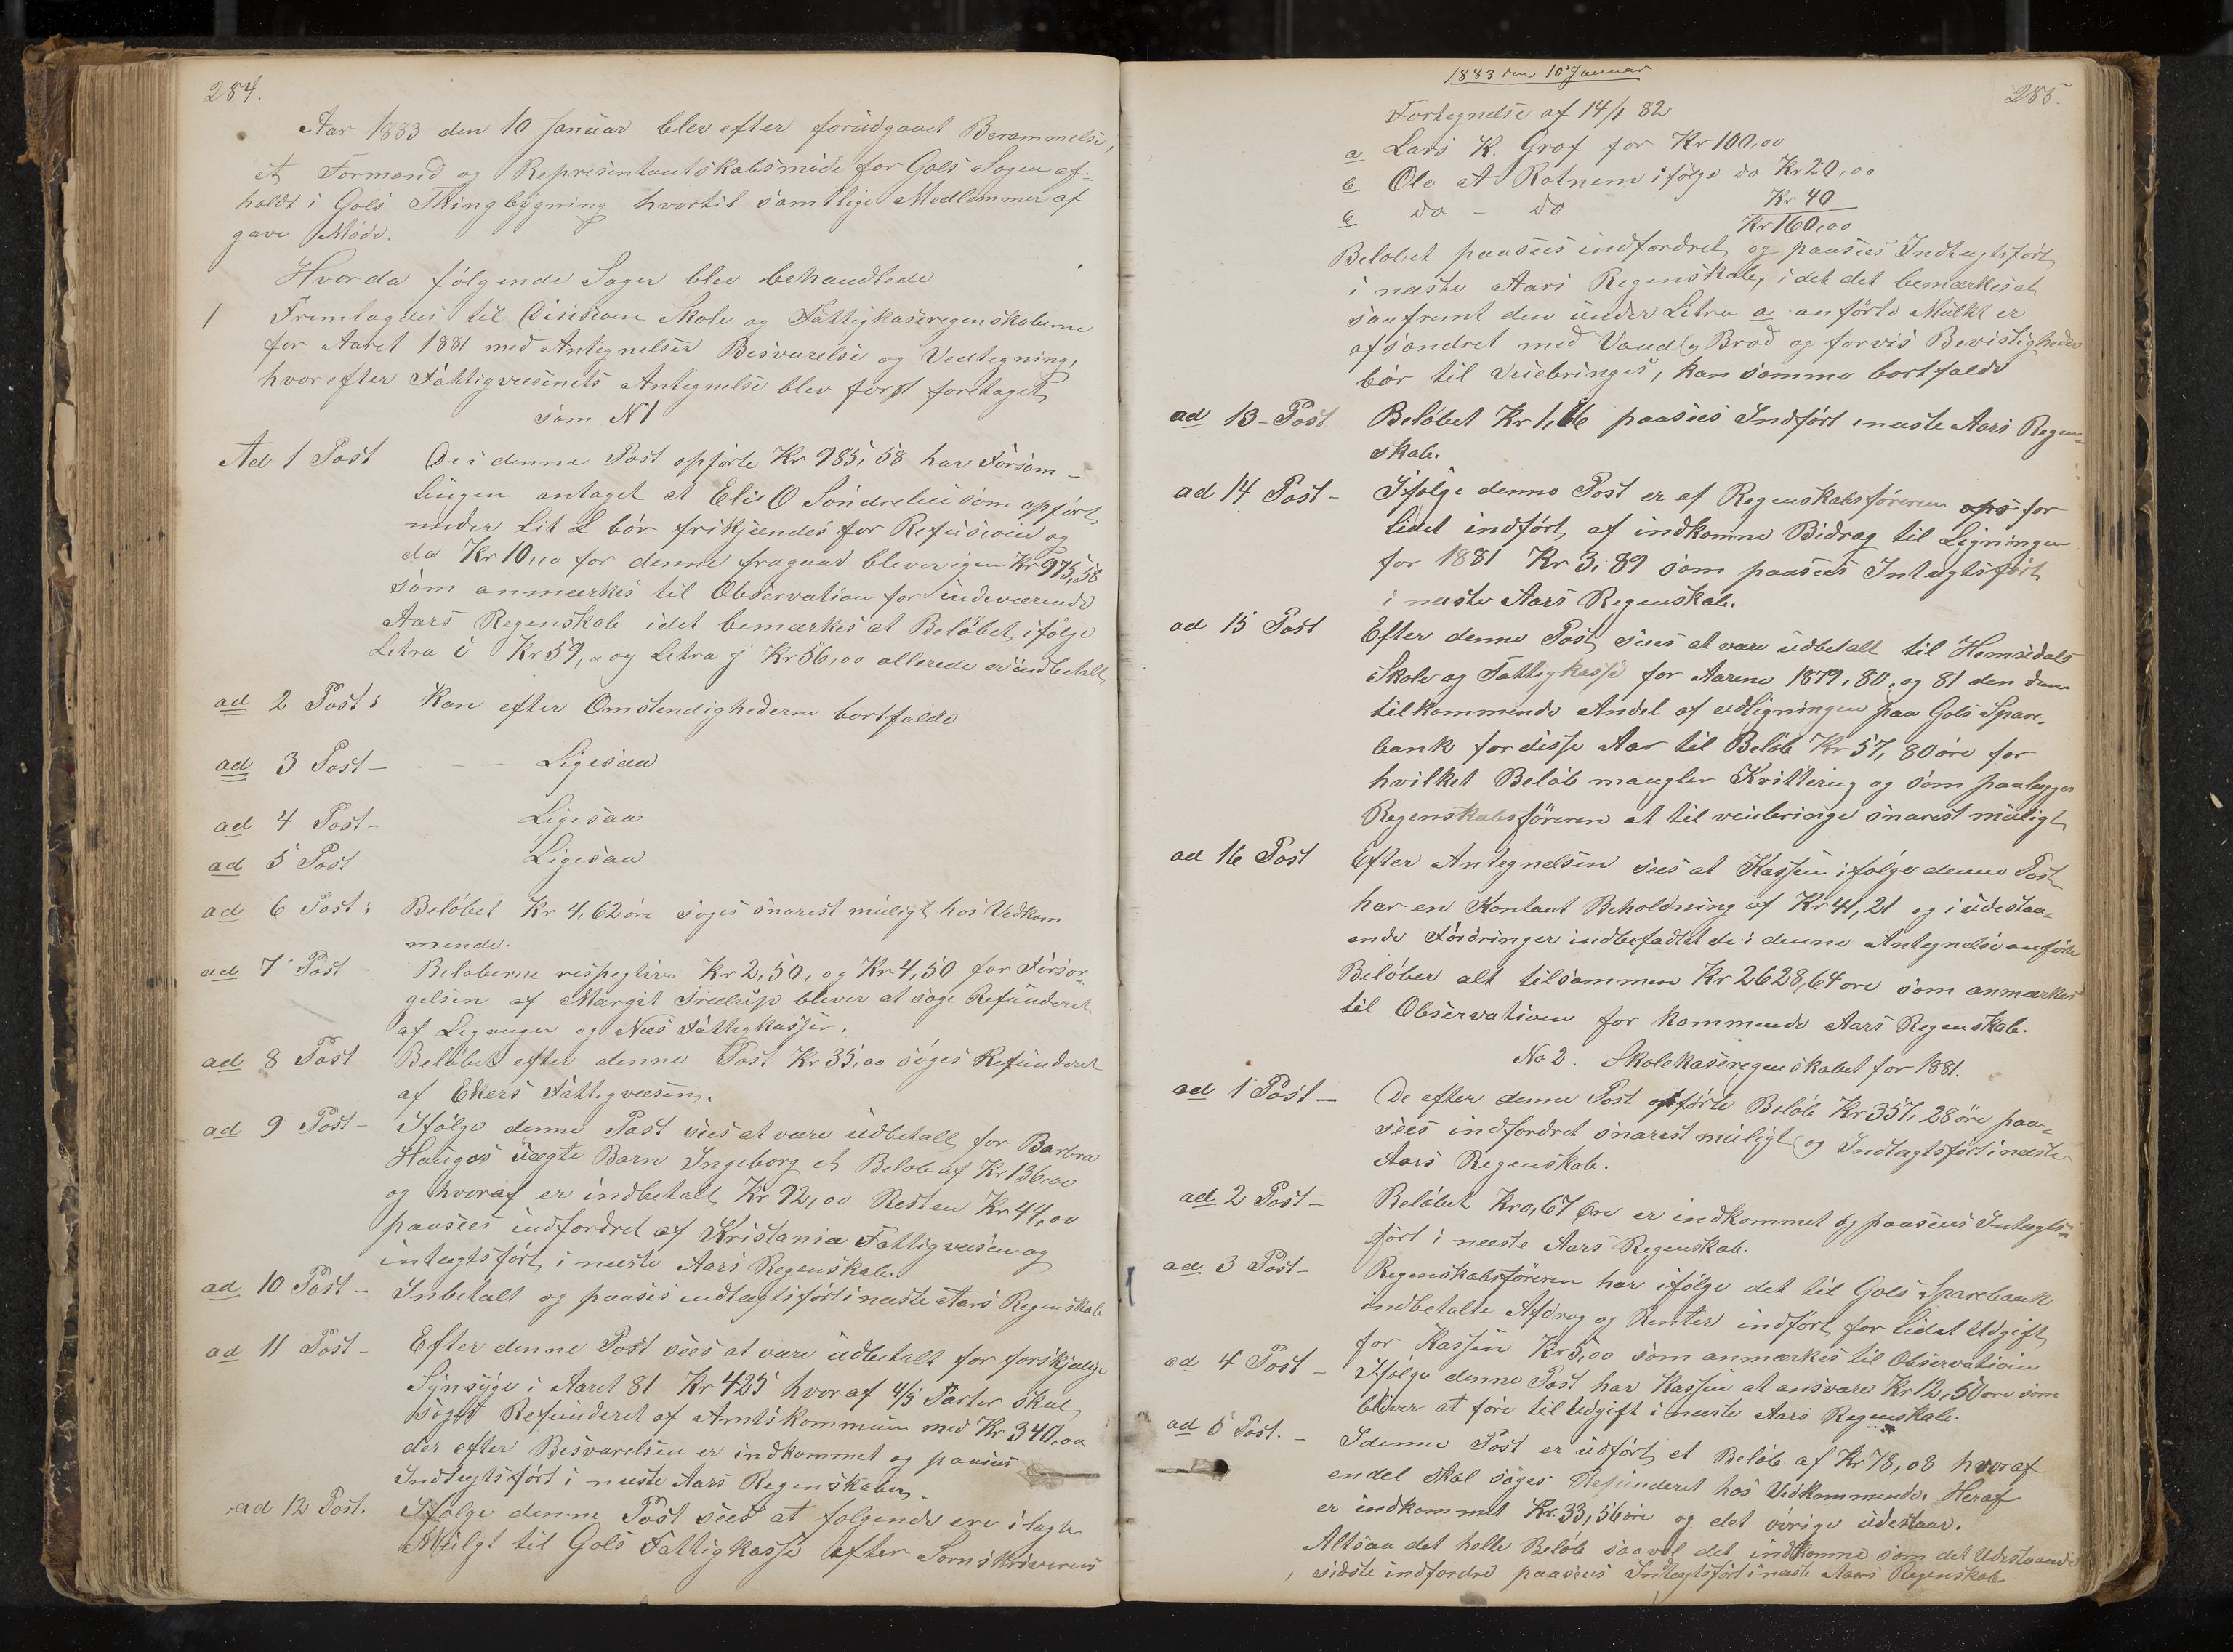 284.
Aar 1883 den 10 Januar blev efter forudgaaet Berammelse,
et Formand og Representantskabsmøde for Gols Sogn af-
holdt i Gols Thingbygning hvortil samtlige Medlemmer af
gave Møde.
Hvorda følgende Sager blev behandlede
1 Fremlagdes til Disision Skole og Fattigkaseregenskaberne
for Aaret 1881 med Antegnelser Besvarelse og Vedtegning,
hvorefter Fattigvæsenets Antegnelse blev først foretaget
som N 1
Ad 1 Post De i denne Post opførte Kr 985,58 har Forsam-
lingen antaget at Eli O Søndrelie som opført
under Lit L bør frikjendes for Refusion og
da Kr 10,00 for denne fragaar bliver igjen Kr 975,58
som anmærkes til Observation for indeværende
Aars Regenskab idet bemærkes at Beløbet ifølge
Letra i Kr 59,00 og Letra j Kr 56,00 allerede er indbetalt
ad 2 Post: Kan efter Omstendighederne bortfalde
ad 3 Post - - - Ligesaa
ad 4 Post - Ligesaa
ad 5 Post Ligesaa
ad 6 Post: Beløbet Kr 4,62 øre søges snarest muligt hos Vedkom
mende.
ad 7 Post Beløberne respeglive Kr 2,50, og Kr 4,50 for Forsør-
gelsen af Margit bliver at søge Refunderet
af Leganger og Næs Fattigkasser.
ad 8 Post Beløbet efter denne Post Kr 35,00 søges Refunderet
af Ekers Fattigvæsen.
ad 9 Post - Ifølge denne Post sees at være udbetalt for Barbra
Haugos uægte Barn Ingeborg et Beløb af Kr 136,00
og hvoraf er indbetalt Kr 92,00 Resten Kr 44,00
paasees indfordret af Kristania Fattigvæsen og
intægtsført i næste Aars Regenskab.
ad 10 Post - Inbetalt og paases indtægtsført i næste Aars Regenskab
ad 11 Post - Efter denne Post sees at være udbetalt for forskjelige
Synsyge i Aaret 81 Kr 425 hvoraf 4/5 Parter skal
søges Refunderet af Amtskommun med Kr 340,00
der efter Besvarelsen er indkommet og paasees
Indtægtsført i næste Aars Regenskaber.
ad 12 Post. Ifølge denne Post sees at følgende ere ilagte
Mulgt til Gols Fattigkasse efter Sornskriverens
1883 den 10 Januar
285.
Fortegnelse af 14/1 82
a Lars K. Grøf for Kr 100,00
b Ole A Rotnem ifølge do Kr 20,00
c do - do Kr 40
Kr 160,00
Beløbet paasees indfordret og paasees Indtægtsført
i næste Aars Regenskab, idet det bemærkes at
saafremt den under Letra a anførte Mulkt er
afsondret med Vand og Brød og forvis Bevistigheder
bør til veiebringes, kan samme bortfalde
ad 13 - Post Beløbet Kr 1,66 paasees Indført i næste Aars Regen-
skab.
ad 14 Post - Ifølge denne Post er af Regenskabsføreren for
lidet indført af indkomne Bidrag til Ligningen
for 1881 Kr 3,89 som paasees Intægtsført
i næste Aars Regenskab.
ad 15 Post Efter denne Post sees at være udbetalt til Hemsedals
Skole og Fattigkasse for Aarene 1879, 80, og 81 den dem
tilkommende Andel af udligningen paa Gols Spare-
bank for disse Aar til Beløb Kr 57,80 øre for
hvilket Beløb mangler Kvittering og som paalegges
Regenskabsføreren at til veiebringe snarest muligt
ad 16 Post Efter Antegnelsen sees at Kassen ifølge denne Post
har en Kontant Beholdning af Kr 41,21 og i udestaa-
ende Fordringer indbefattet de i denne Antegnelse anførte
Beløber alt tilsammen Kr 2628,64 øre som anmærkes
til Observation for kommende Aars Regenskab.
No 2. Skolekaseregenskabet for 1881.
ad 1 Post - De efter denne Post opførte Beløb Kr 357,28 øre paa-
sees indfordret snarest muligt og Indtægtsført i næste
Aars Regenskab.
ad 2 Post - Beløbet Kr 0,67 Øre er indkommet og paasees Intægts-
ført i næste Aars Regenskab.
ad 3 Post - Regenskabsføreren har ifølge det til Gols Sparebank
indbetalte Afdrag og Renter indført for lidet Udgift
for Kassen Kr 5,00 som anmærkes til Observation
ad 4 Post - Ifølge denne Post har Kassen at ansvare Kr 12,50 øre som
bliver at føre til Udgift i næste Aars Regenskab.
ad 5 Post. - I denne Post er udført et Beløb af Kr 78,08 hvoraf
endel skal søges Refunderet hos Vedkommende. Heraf
er indkommet Kr. 33,56 øre og det øvrige udestaar.
Altsaa det helle Beløb saavel det indkomne som det Udestaaende
sidste indfordre paasees Indtægtsført i næste Aars Regenskab